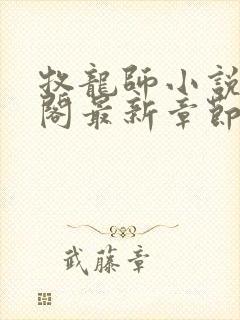 牧龍師小說
閣最新章節
武藤章